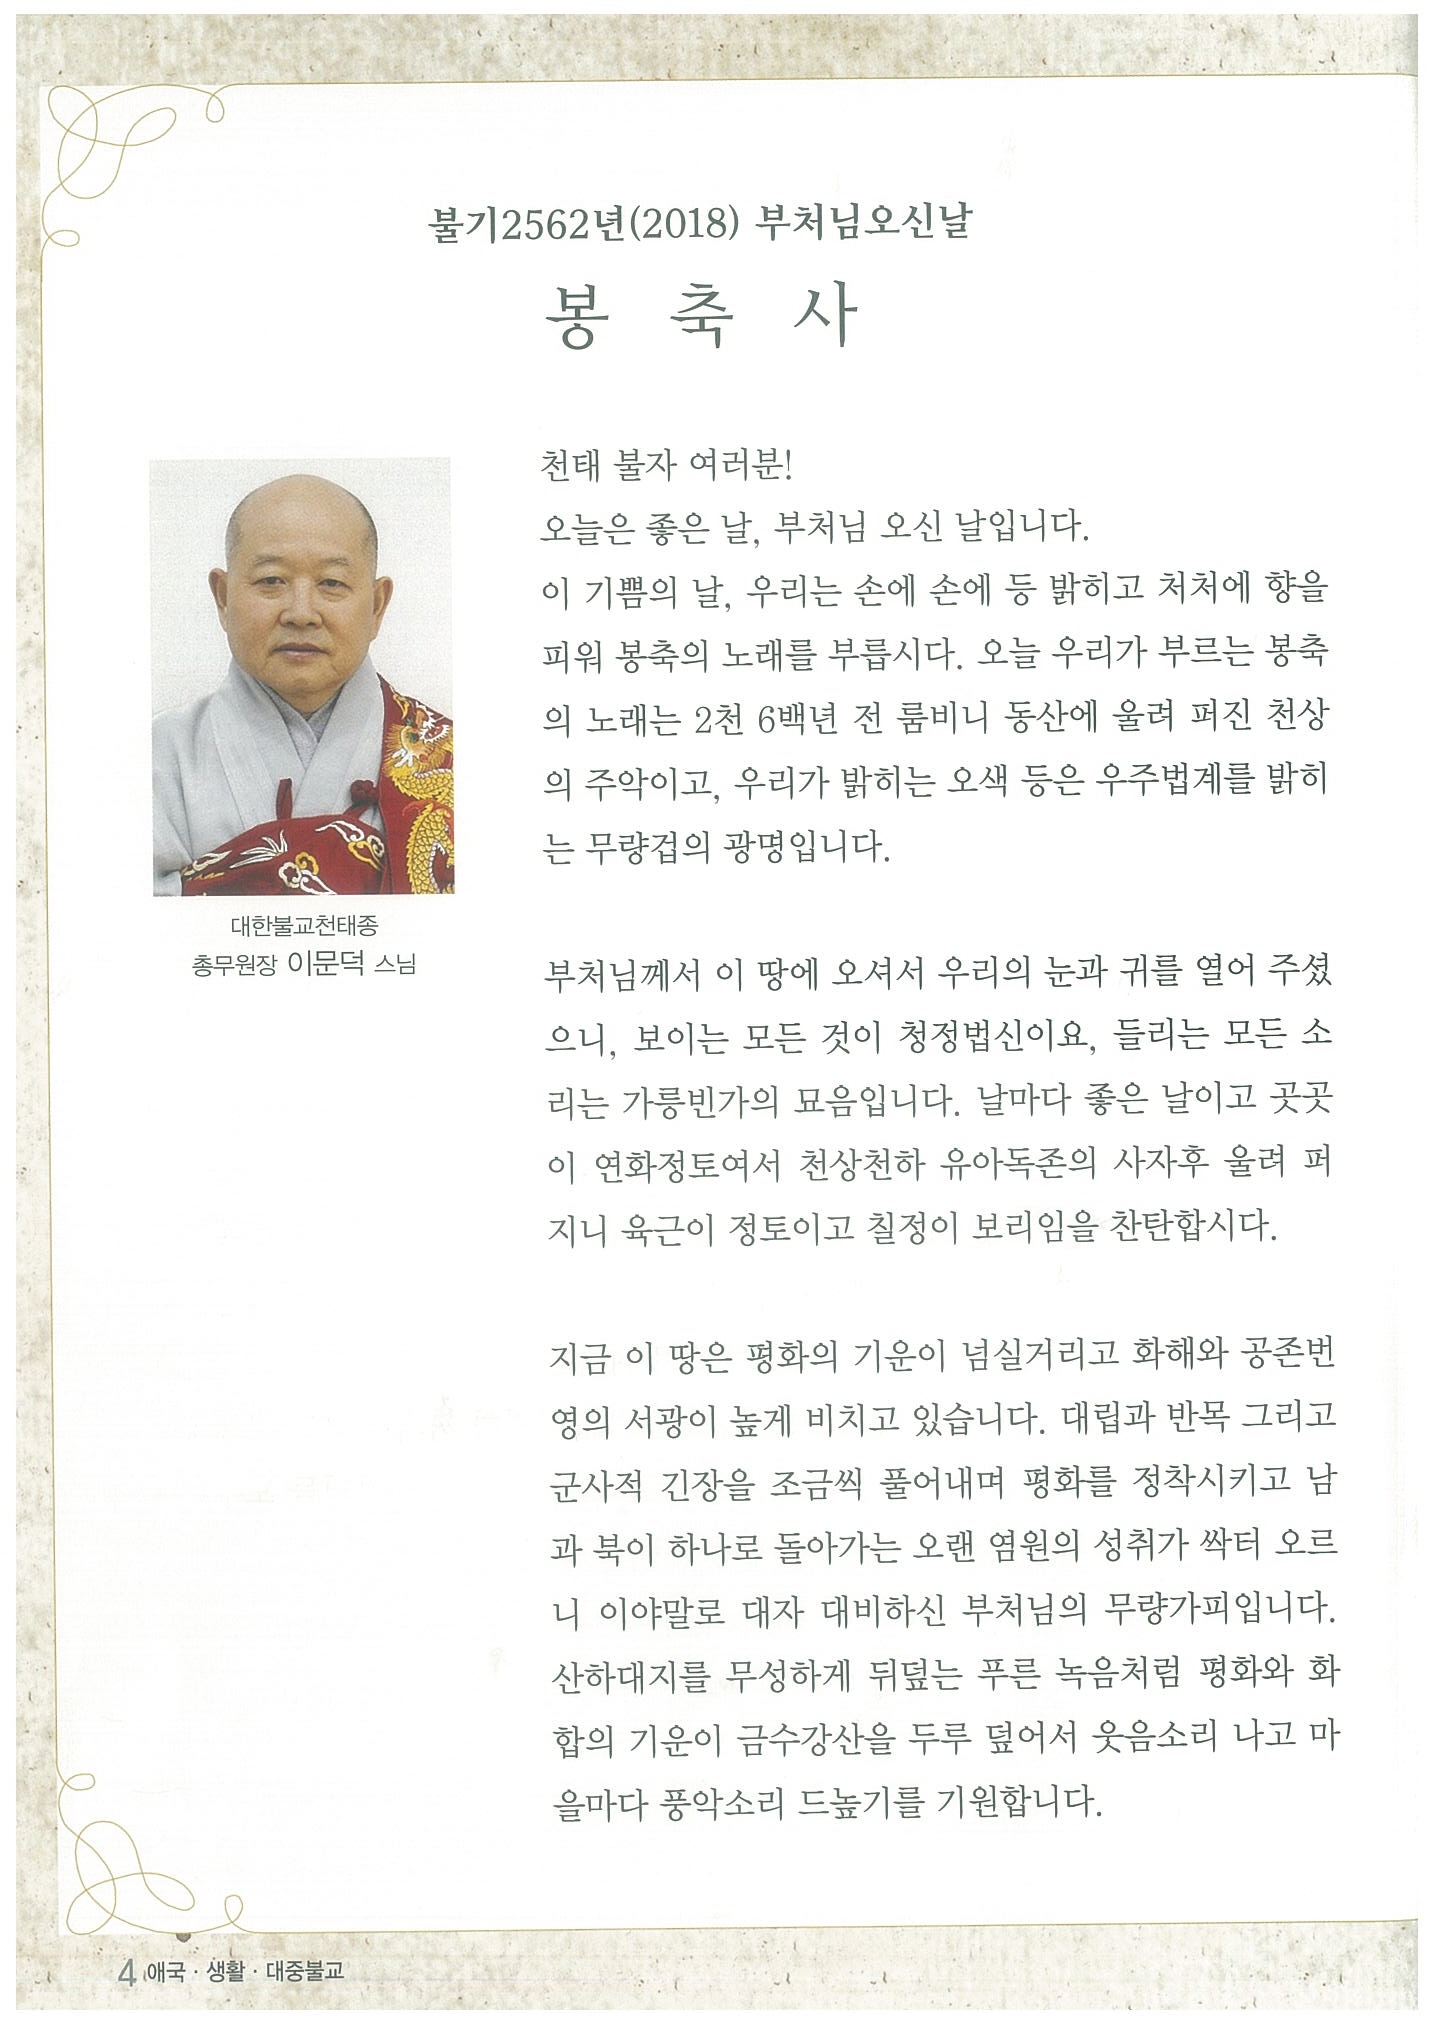 불기2562년(2018) 부처님오신날
봉 축 사
대한불교천태종
총무원장 이문덕 스님
천태 불자 여러분!
오늘은 좋은 날, 부처님 오신 날입니다.
이 기쁨의 날, 우리는 손에 손에 등 밝히고 처처에 향을
피워 봉축의 노래를 부릅시다. 오늘 우리가 부르는 봉축
의 노래는 2천 6백년 전 룸비니 동산에 울려 퍼진 천상
의 주악이고, 우리가 밝히는 오색 등은 우주법계를 밝히
는 무량겁의 광명입니다.
부처님께서 이 땅에 오셔서 우리의 눈과 귀를 열어 주셨
으니, 보이는 모든 것이 청정법신이요, 들리는 모든 소
리는 가릉빈가의 묘음입니다. 날마다 좋은 날이고 곳곳
이 연화정토여서 천상천하 유아독존의 사자후 울려 퍼
지니 육근이 정토이고 칠정이 보리임을 찬탄합시다.
지금 이 땅은 평화의 기운이 넘실거리고 화해와 공존번
영의 서광이 높게 비치고 있습니다. 대립과 반목 그리고
군사적 긴장을 조금씩 풀어내며 평화를 정착시키고 남
과 북이 하나로 돌아가는 오랜 염원의 성취가 싹터 오르
니 이야말로 대자 대비하신 부처님의 무량가피입니다.
산하대지를 무성하게 뒤덮는 푸른 녹음처럼 평화와 화
합의 기운이 금수강산을 두루 덮어서 웃음소리 나고 마
을마다 풍악소리 드높기를 기원합니다.
4 애국 · 생활 · 대중불교